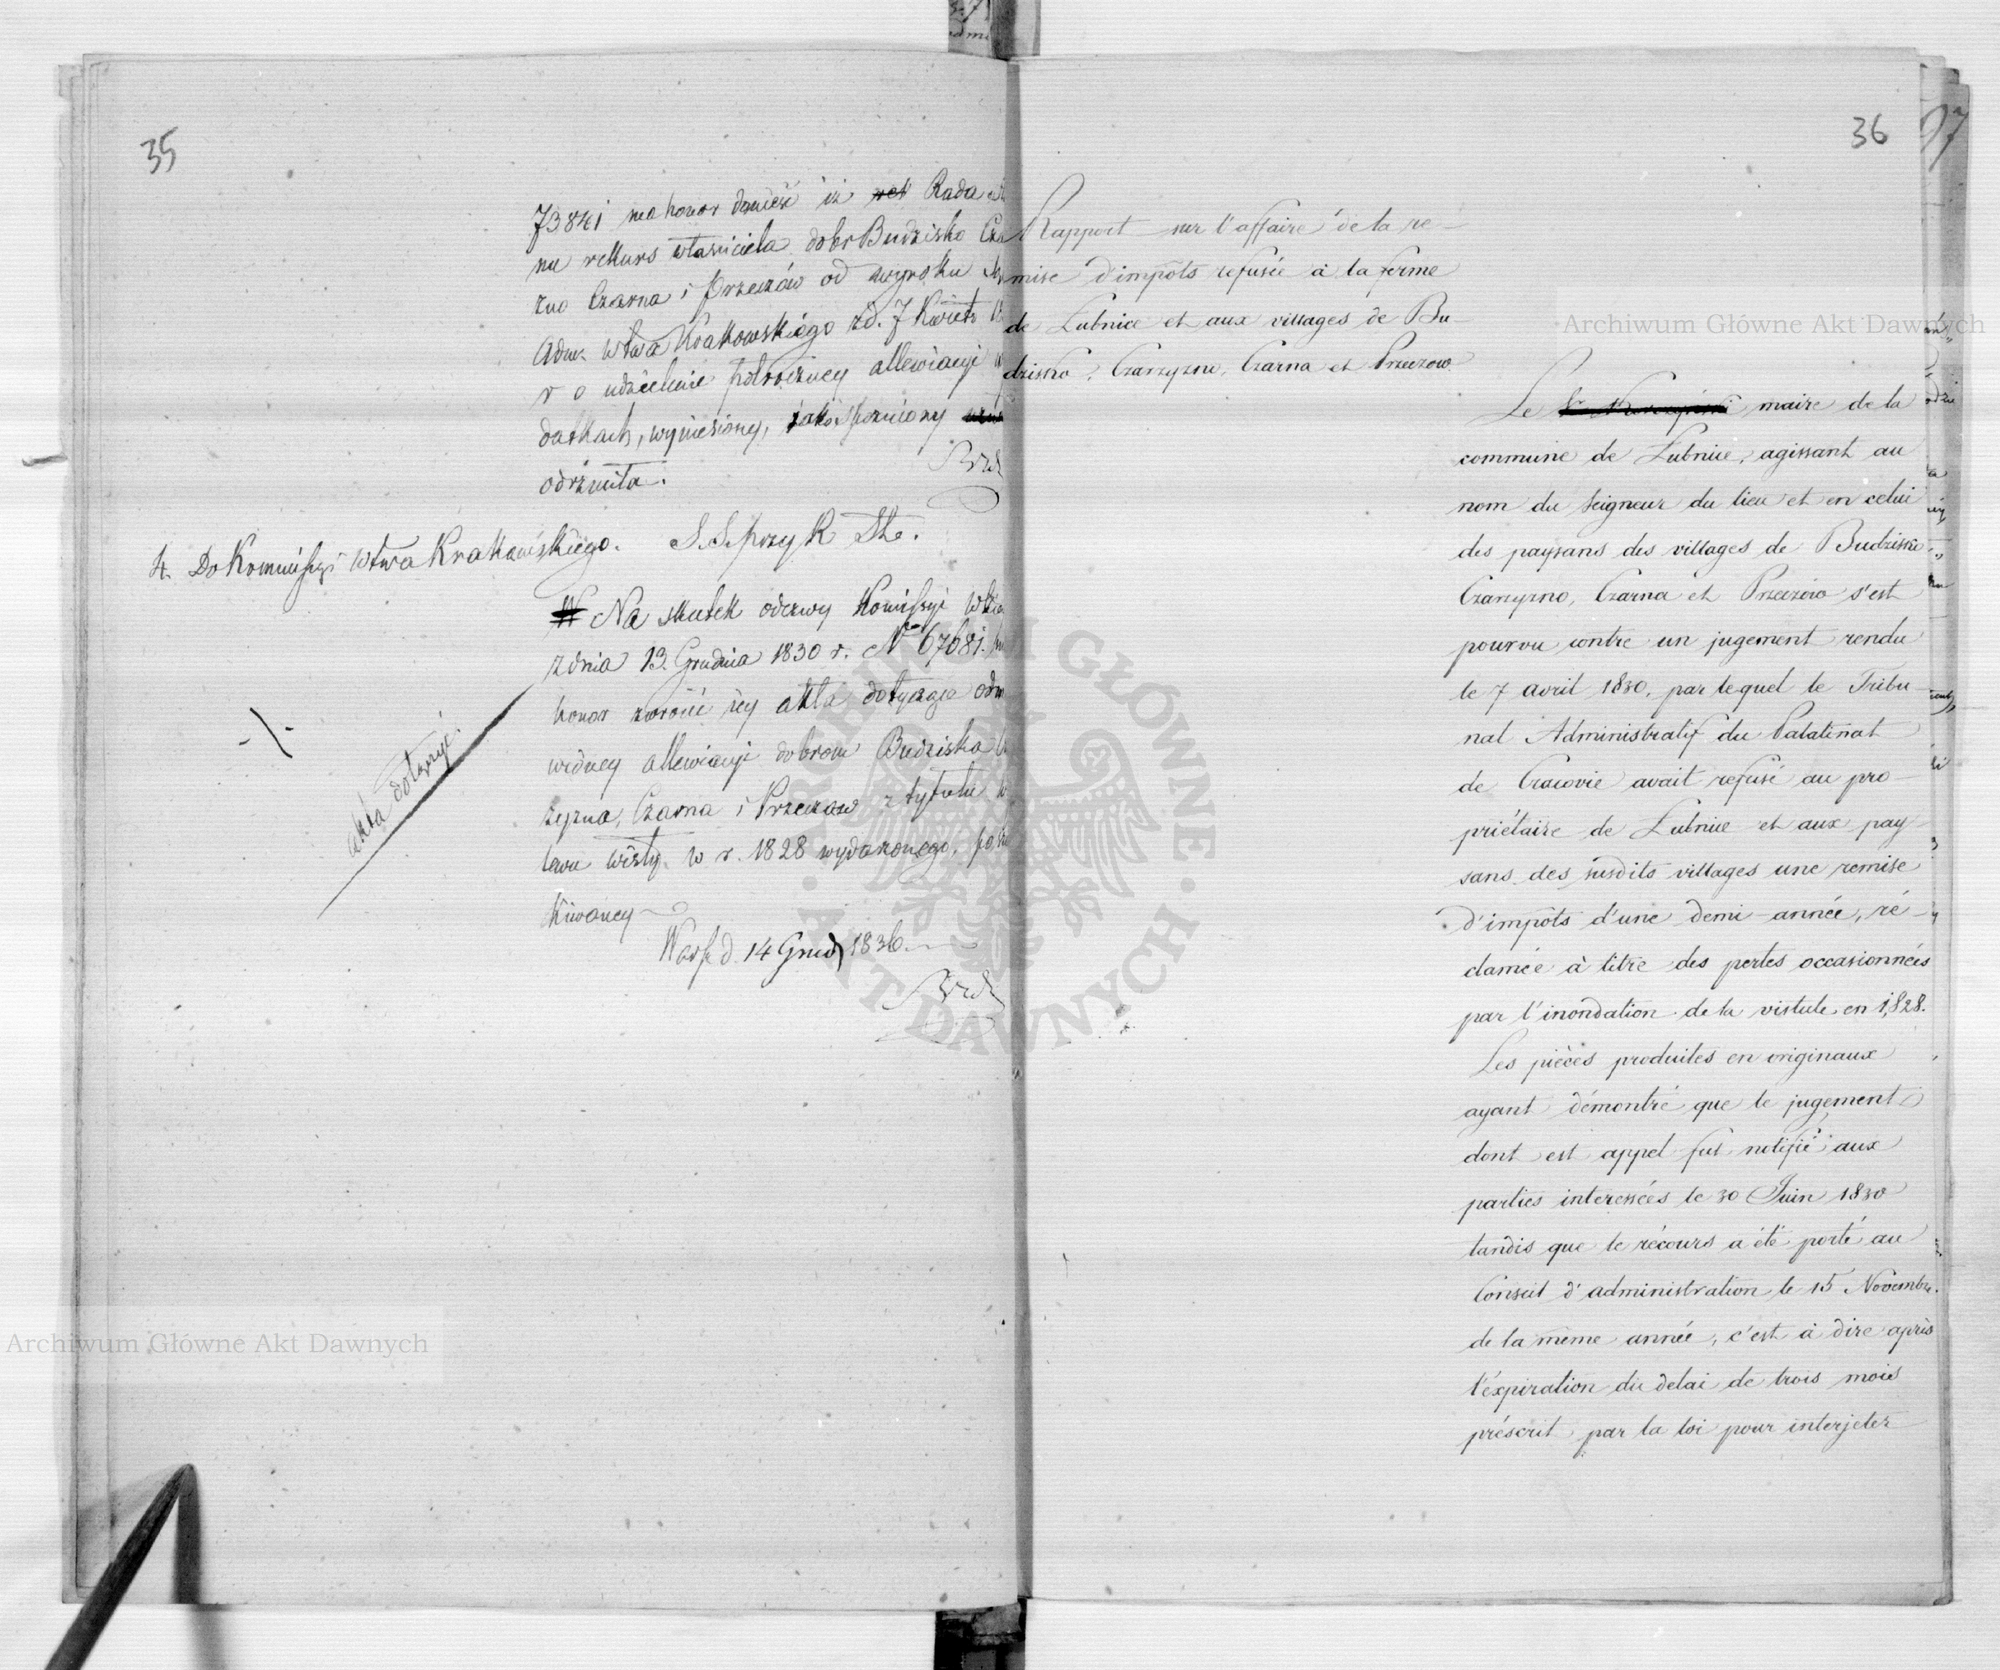 35
73841 ma honor donieść iż ret Rada
na rekurs właściciela dobr Budzisko
zna Czarna i Przeczów od wyroku
Adm. Wtwa Krakowskiego zd. 7 Kwiet
r o udzielenie półroczney allewiacyi
datkach, wyniesiony, jako spóźniony
odrzuciła.
4. Do Kommissyi Wtwa Krakowskiego. S. S. przy R St.
W Na skutek odezwy Komissyi
z dnia 13. Grudnia 1830 r. No 67681.
honor zwrócić jey akta dotyczące
wioney allewiacyi dobrom Budziska
zyzna, Czarna i Przeczow z tytułu
lewu Wisły w r. 1828 wydarzonego,
kiwaney
akta dołączyć.
Warsz d. 14 Grud 1836
36
97
Rapport sur l'affaire de la re-
mise d'impôts refusée à la ferme
de Lubnice et aux villages de Bu-
dzisko, Czarzyzna, Czarna et Przeczow.
Le maire de la
commune de Lubnice, agissant au
nom du Seigneur du lieu et en celui
des paysans des villages de Budzisko
Czarzyzno, Czarna et Przeczów s'est
pourvu contre un jugement rendu
le 7 avril 1830, par lequel le Tribu-
nal Administratif du Palatinat
de Cracovie avait refusé au pro-
priétaire de Lubnice et aux pay-
sans des susdits villages une remise
d'impôts d'une demi-année, ré-
clamée à titre des pertes occasionnées
par l'inondation de la vistule en 1828.
Les pièces produites en originaux
ayant démontré que le jugement
dont est appel fut notifié aux
parties interessées le 30 Juin 1830
tandis que le récours a été porté au
Conseil d'administration le 15 Novembre
de la même année, c'est à dire après
l'éxpiration du delai de trois mois
préscrit par la loi pour interjeter
Archiwum Główne Akt Dawnych
Archiwum Główne Akt Dawnych
ARCHIWUM GŁÓWNE · AKT DAWNYCH ·